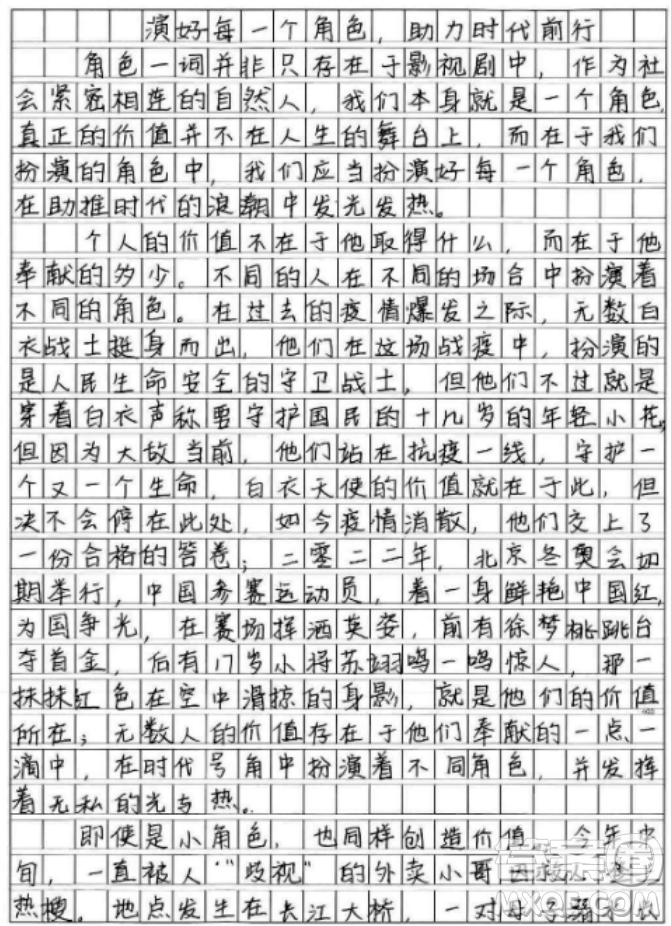 演好每一个角色，助力时代前行
角色一词并非只存在于影视剧中，作为社
会紧密相连的自然人，我们本身就是一个角色，
真正的价值并不在人生的舞台上，而在于我们
扮演的角色中，我们应当扮演好每一个角色，
在助推时代的浪潮中发光发热。
个人的价值不在于他取得什么，而在于他
奉献的多少。不同的人在不同的场合中扮演着
不同的角色。在过去的疫情爆发之际，无数白
衣战士挺身而出，他们在这场战疫中，扮演的
是人民生命安全的守卫战士，但他们不过就是
穿着白衣声称要守护国民的十几岁的年轻小花，
但因为大敌当前，他们站在抗疫一线，守护一
个又一个生命，白衣天使的价值就在于此，但
决不会停在此处，如今疫情消散，他们交上了
一份合格的答卷；二零二二年，北京冬奥会如
期举行，中国参赛运动员，着一身鲜艳中国红，
为国争光，在赛场挥洒英姿，前有徐梦桃跳台
夺首金，后有17岁小将苏翊鸣一鸣惊人，那一
抹抹红色在空中滑掠的身影，就是他们的价值
所在；无数人的价值存在于他们奉献的一点一
滴中，在时代号角中扮演着不同角色，并发挥
着无私的光与热。
即使是小角色，也同样创造价值。今年中
旬，一直被人“歧视”的外卖小哥因救人
热搜。地点发生在长江大桥，一对母子